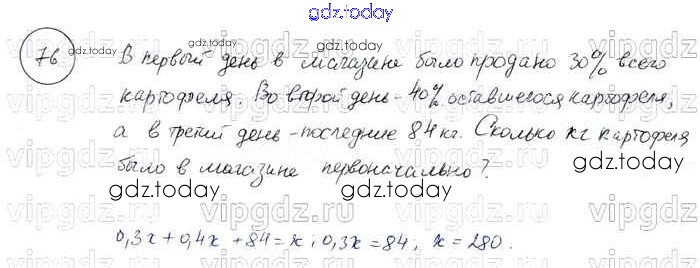 gdz.today
76 В первый день в магазине было продано 30% всего
картофеля. Во второй день - 40% оставшегося картофеля,
а в третий день - последние 84 кг. Сколько кг картофеля
было в магазине первоначально?
0,3x + 0,4x + 84 = x; 0,3x = 84, x = 280.
gdz.today
gdz.today
gdz.today
gdz.today
gdz.today
gdz.today
vipgdz.ru vipgdz.ru vipgdz.ru vipgdz.ru